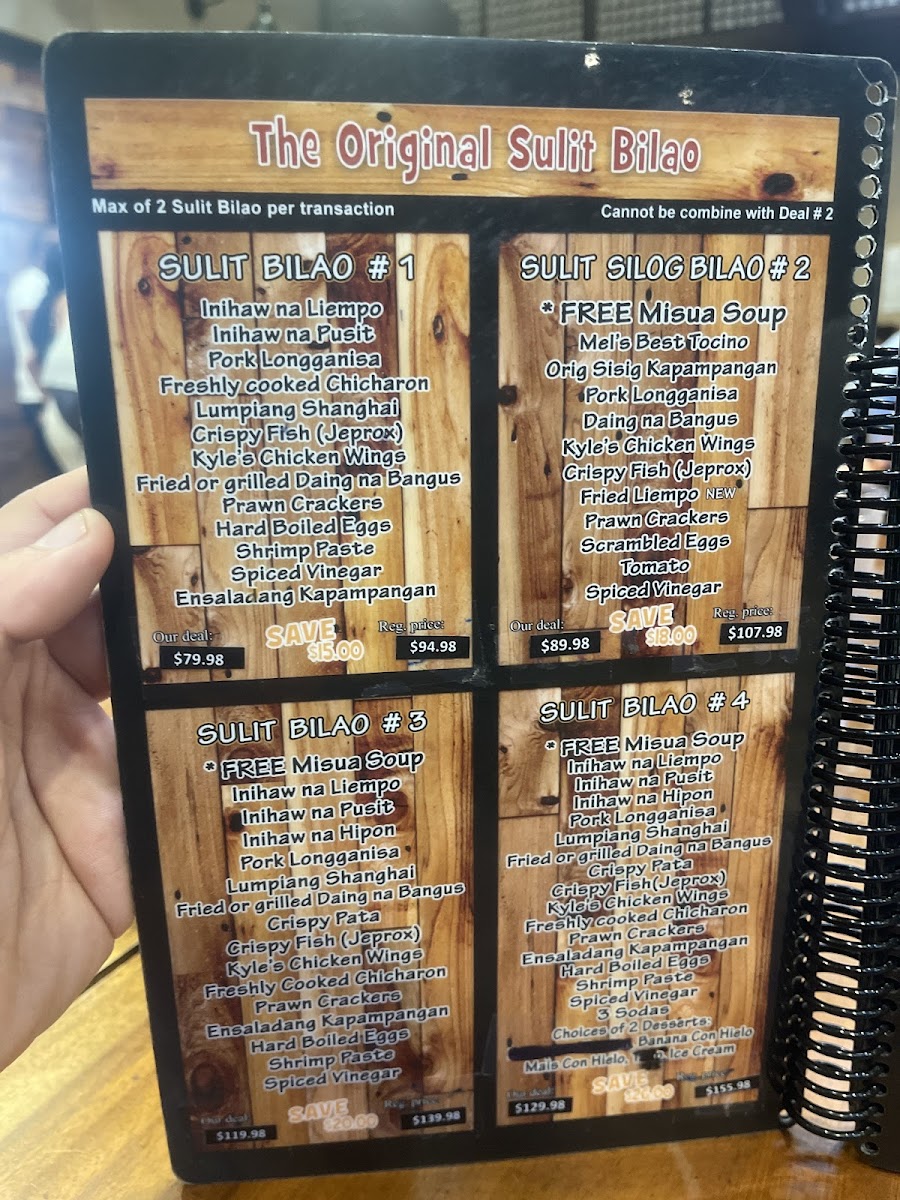 The Original Sulit Bilao
Max of 2 Sulit Bilao per transaction
Cannot be combine with Deal # 2
SULIT BILAO # 1
Inihaw na Liempo
Inihaw na Pusit
Pork Longganisa
Freshly cooked Chicharon
Lumpiang Shanghai
Crispy Fish (Jeprox)
Kyle's Chicken Wings
Fried or grilled Daing na Bangus
Prawn Crackers
Hard Boiled Eggs
Shrimp Paste
Spiced Vinegar
Ensaladang Kapampangan
Our deal:
$79.98
SAVE
$15.00
Reg. price:
$94.98
SULIT SILOG BILAO # 2
* FREE Misua Soup
Mel's Best Tocino
Orig Sisig Kapampangan
Pork Longganisa
Daing na Bangus
Kyle's Chicken Wings
Crispy Fish (Jeprox)
Fried Liempo NEW
Prawn Crackers
Scrambled Eggs
Tomato
Spiced Vinegar
Our deal:
$89.98
SAVE
$18.00
Reg. price:
$107.98
SULIT BILAO # 3
* FREE Misua Soup
Inihaw na Liempo
Inihaw na Pusit
Inihaw na Hipon
Pork Longganisa
Lumpiang Shanghai
Fried or grilled Daing na Bangus
Crispy Pata
Crispy Fish (Jeprox)
Kyle's Chicken Wings
Freshly Cooked Chicharon
Prawn Crackers
Ensaladang Kapampangan
Hard Boiled Eggs
Shrimp Paste
Spiced Vinegar
Our deal:
$119.98
SAVE
$20.00
Reg. price:
$139.98
SULIT BILAO # 4
* FREE Misua Soup
Inihaw na Liempo
Inihaw na Pusit
Inihaw na Hipon
Pork Longganisa
Lumpiang Shanghai
Fried or grilled Daing na Bangus
Crispy Pata
Crispy Fish(Jeprox)
Kyle's Chicken Wings
Freshly cooked Chicharon
Prawn Crackers
Ensaladang Kapampangan
Hard Boiled Eggs
Shrimp Paste
Spiced Vinegar
3 Sodas
Choices of 2 Desserts:
Banana Con Hielo
Mais Con Hielo, Ice Cream
Our deal:
$129.98
SAVE
$26.00
Reg. price:
$155.98